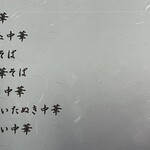 華
中華
そば
華そば
中華
いたぬき中華
い中華